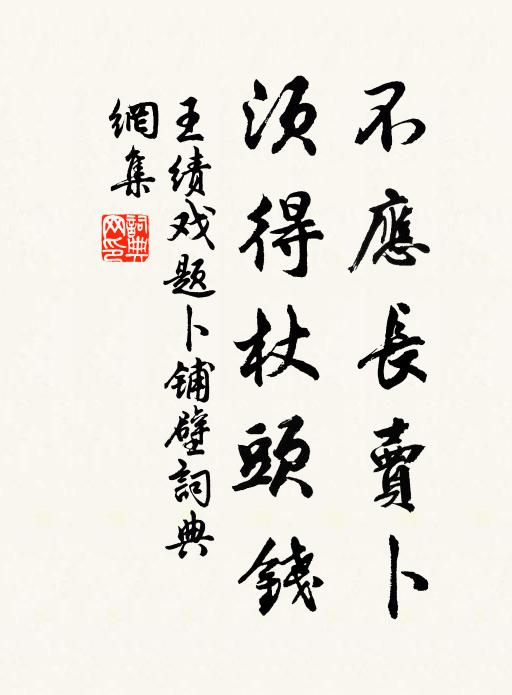 不應長賣卜
須得杖頭錢
王績戏题卜鋪壁詞典
網集
詞典
网印